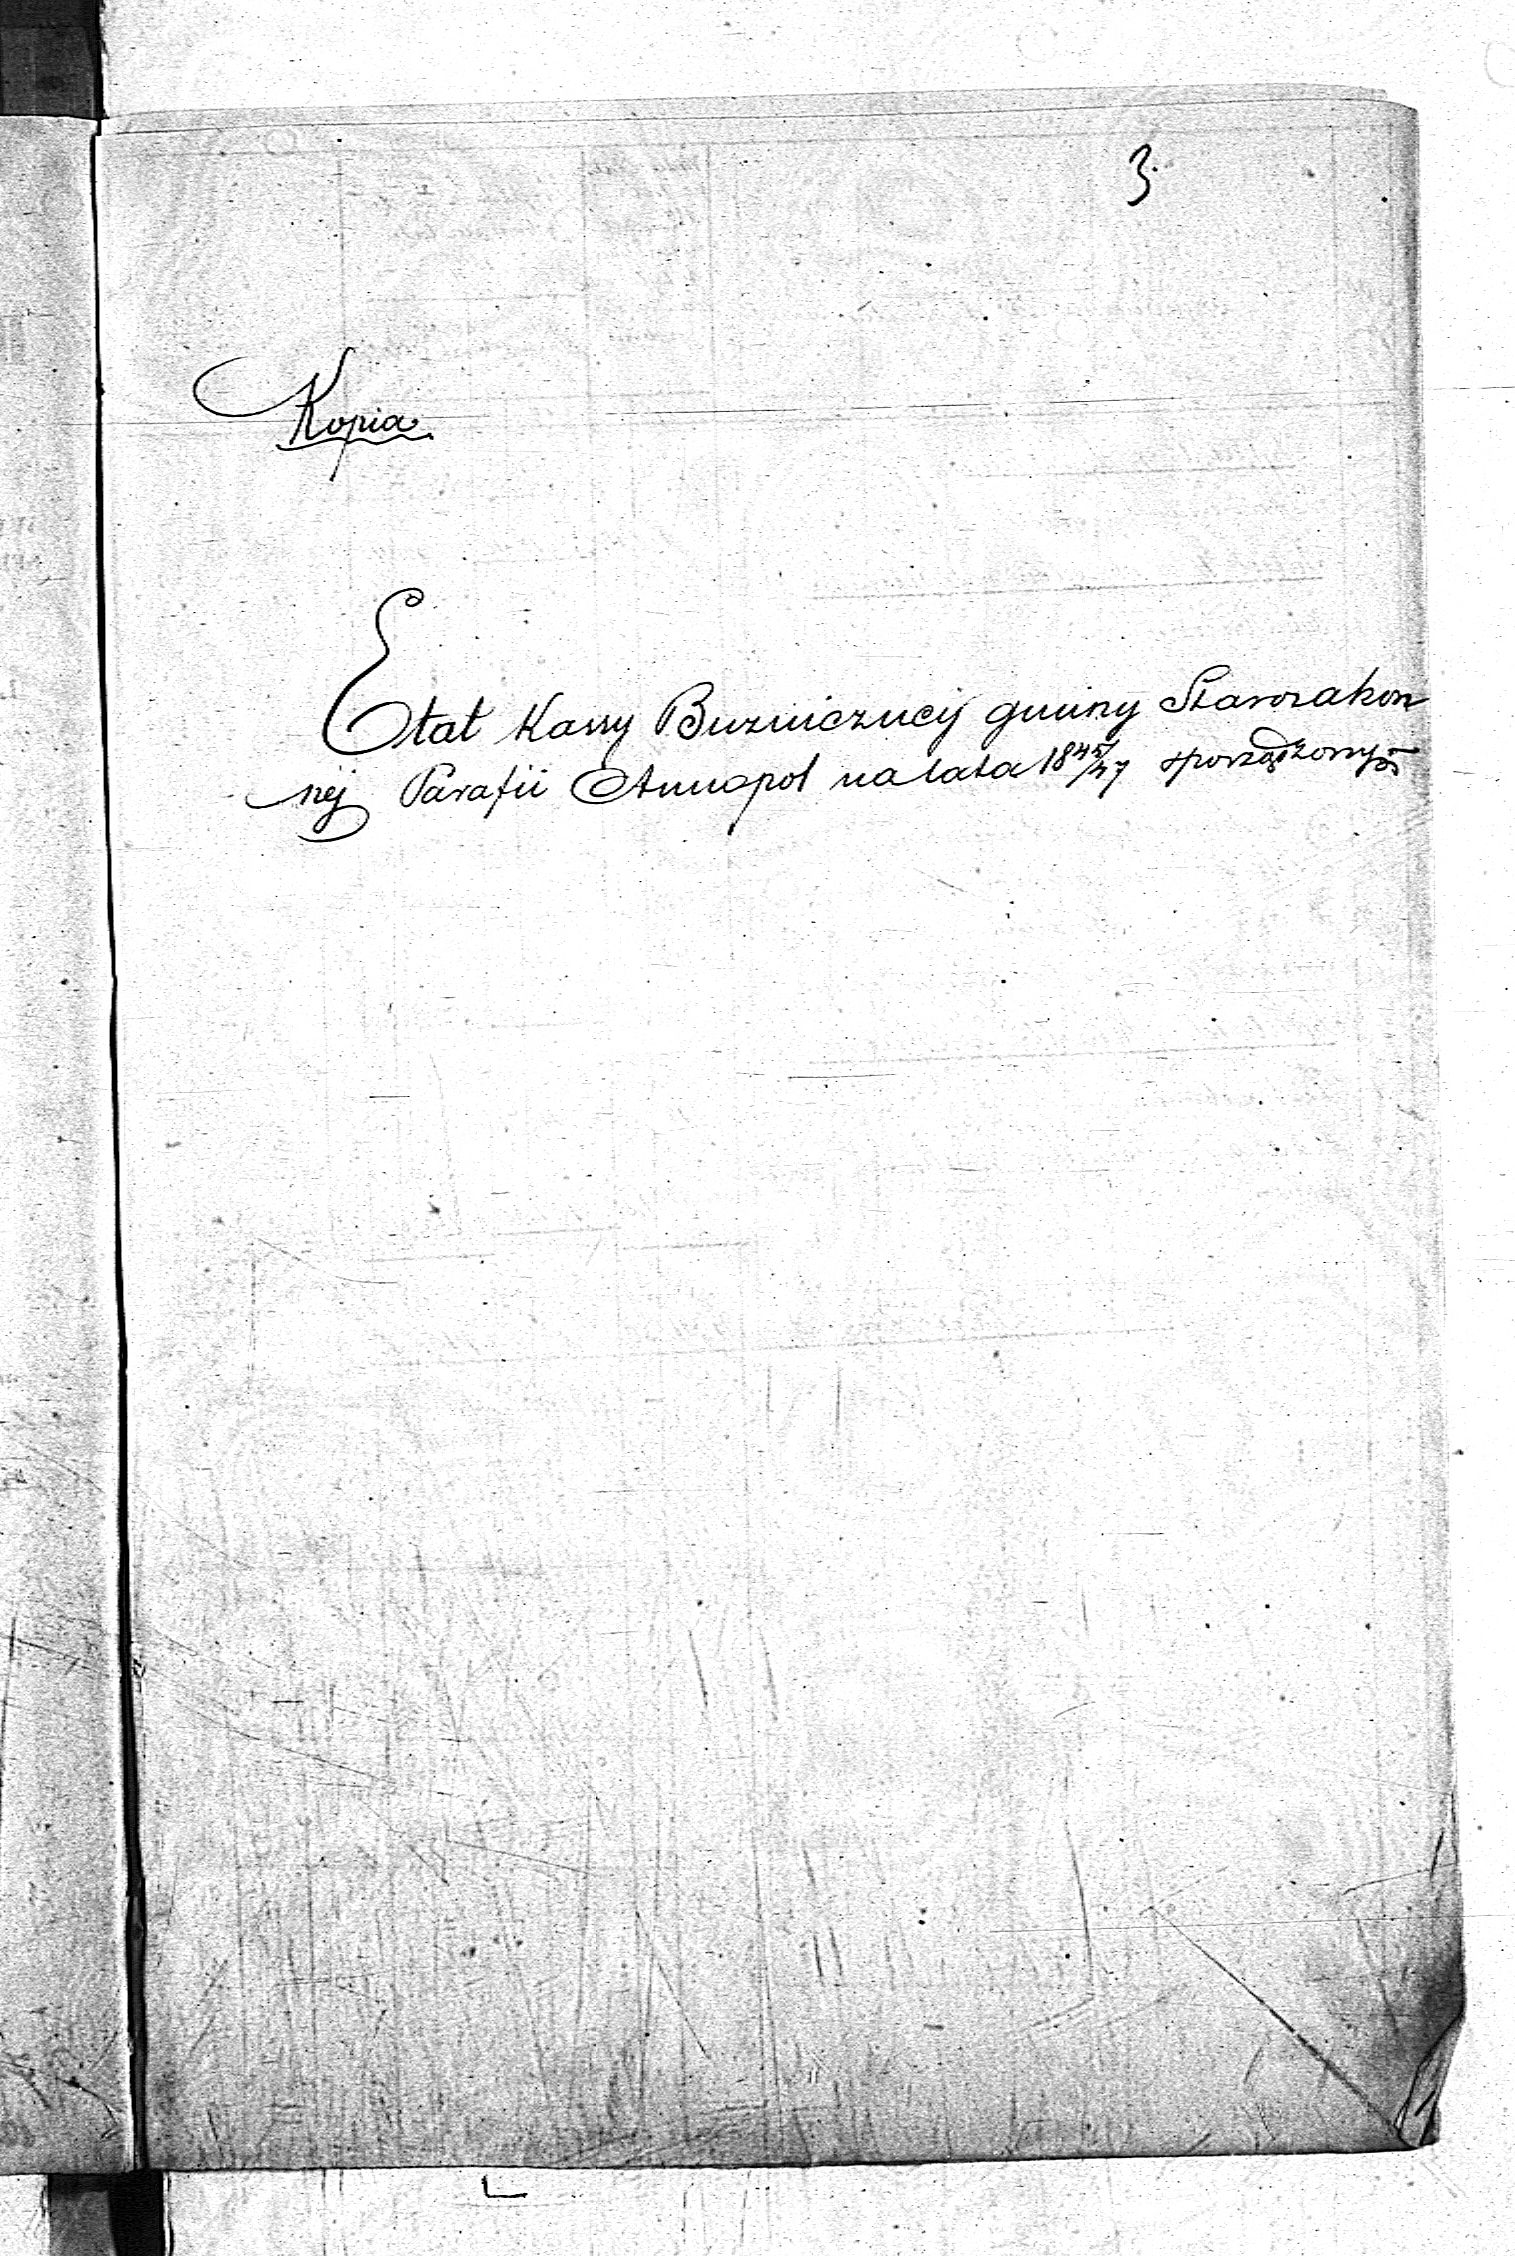 3.
Kopia
Etat Kassy Bużniczney gminy Starozakon
nej Parafii Annopol na lata 1845/47 sporządzony